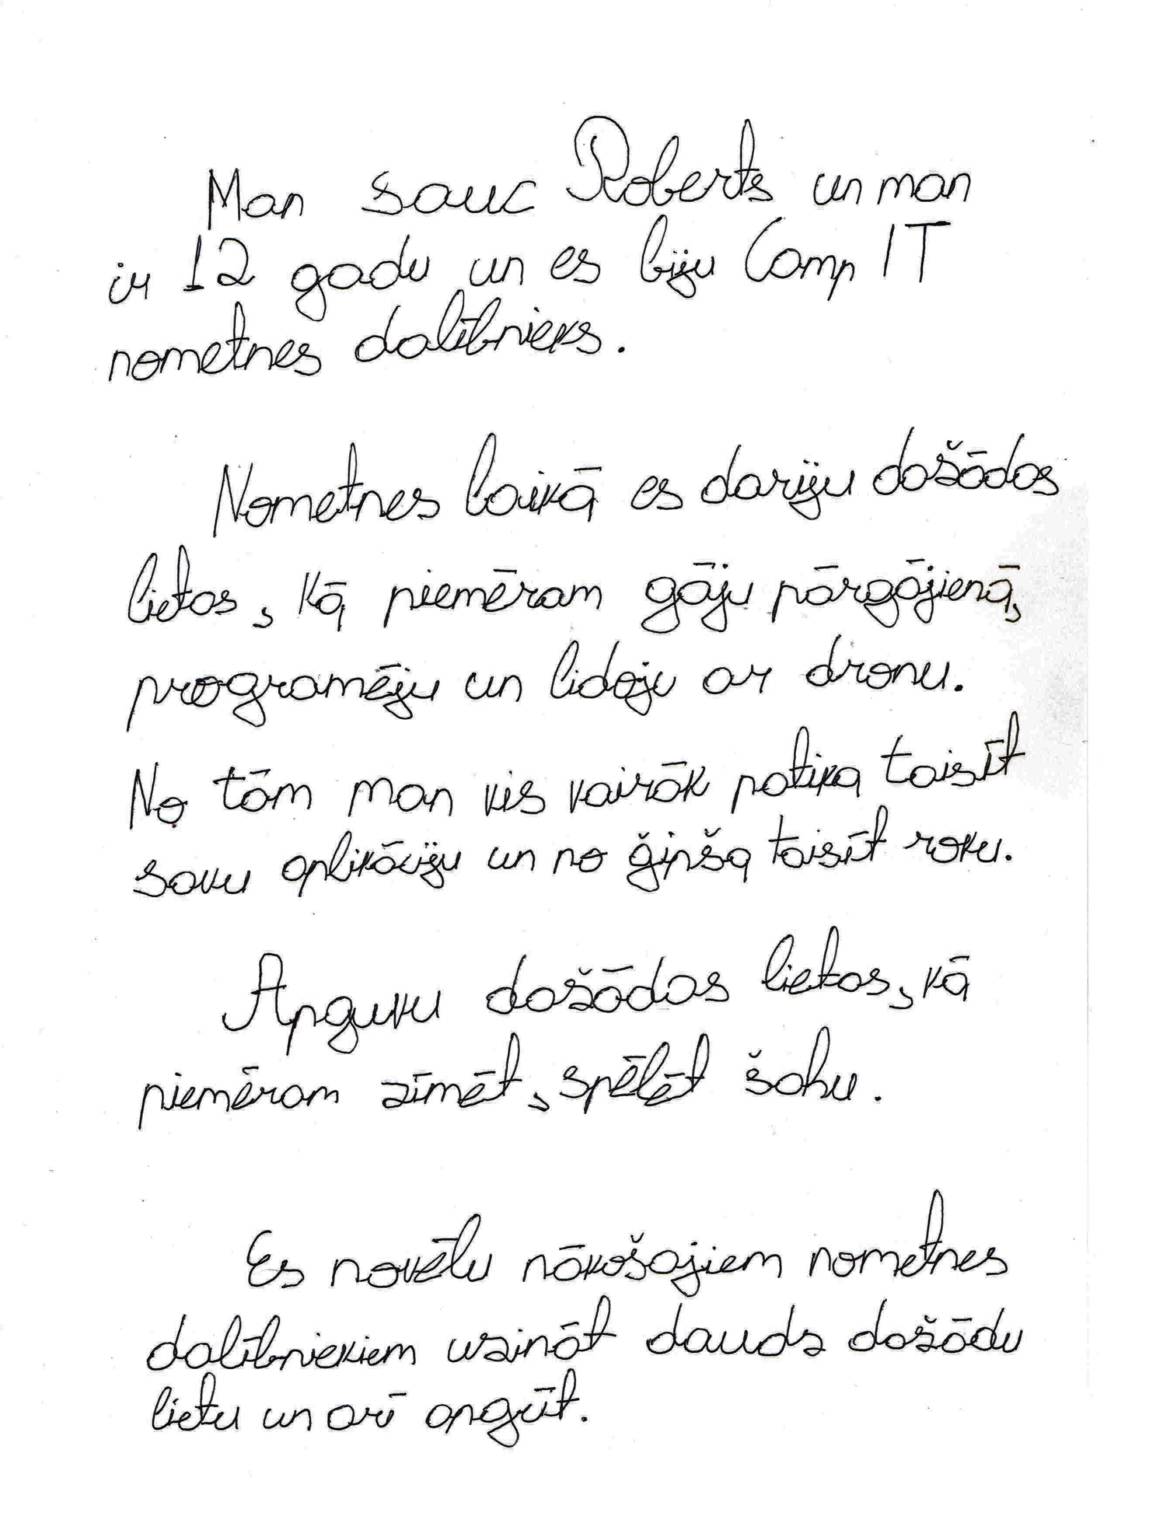 Man sauc Roberts un man
ir 12 gadu un es biju Camp IT
nometnes dalībnieks.
Nometnes laikā es darīju dašādas
lietas, kā piemēram gāju pārgājienā,
programēju un lidoju ar dronu.
No tām man vis vairāk patika taisīt
savu aplikāciju un no ģipša taisīt roku.
Apguvu dašādas lietas, kā
piemēram zīmēt, spēlēt šahu.
Es novēlu nākošajiem nometnes
dalībniekiem uzināt daudz dašādu
lietu un arī apgūt.